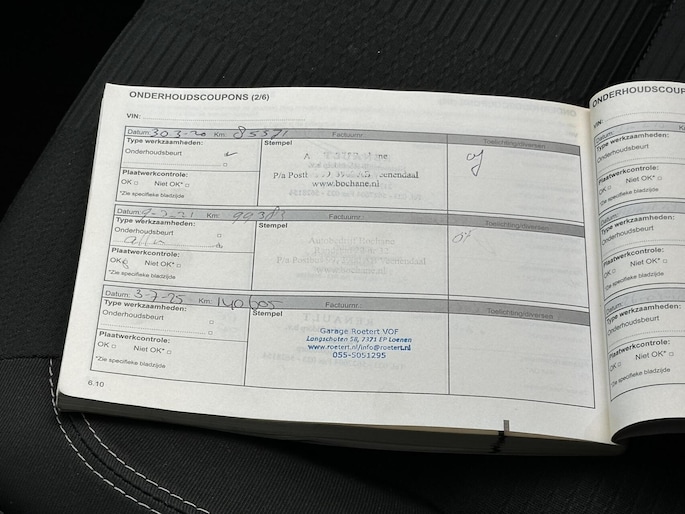 ONDERHOUDSCOUPONS (2/6)
VIN:
Datum: 30-3-20 Km: 85571 Factuurnr.: Toelichting/diversen
Type werkzaamheden: Stempel
Onderhoudsbeurt
Plaatwerkcontrole:
OK Niet OK*
*Zie specifieke bladzijde
P/a Postb
www.bochane.nl
Datum: 9-3-21 Km: 99383 Factuurnr.: Toelichting/diversen
Type werkzaamheden: Stempel
Onderhoudsbeurt
Plaatwerkcontrole:
OK Niet OK*
*Zie specifieke bladzijde
Autobedrijf Bochane
P/a Postbus Veenendaal
www.bochane.nl
Datum: 3-7-25 Km: 140.005 Factuurnr.: Toelichting/diversen
Type werkzaamheden: Stempel
Onderhoudsbeurt
Plaatwerkcontrole:
OK Niet OK*
*Zie specifieke bladzijde
Garage Roetert VOF
Langschoten 58, 7371 EP Loenen
www.roetert.nl/info@roetert.nl
055-5051295
6.10
ONDERHOUDSCOUP
VIN:
Datum:
Type werkzaamheden:
Onderhoudsbeurt
Plaatwerkcontrole:
OK Niet OK*
*Zie specifieke bladzijde
Datum:
Type werkzaamheden:
Onderhoudsbeurt
Plaatwerkcontrole:
OK Niet OK*
*Zie specifieke bladzijde
Datum:
Type werkzaamheden:
Onderhoudsbeurt
Plaatwerkcontrole:
OK Niet OK*
*Zie specifieke bladzijde